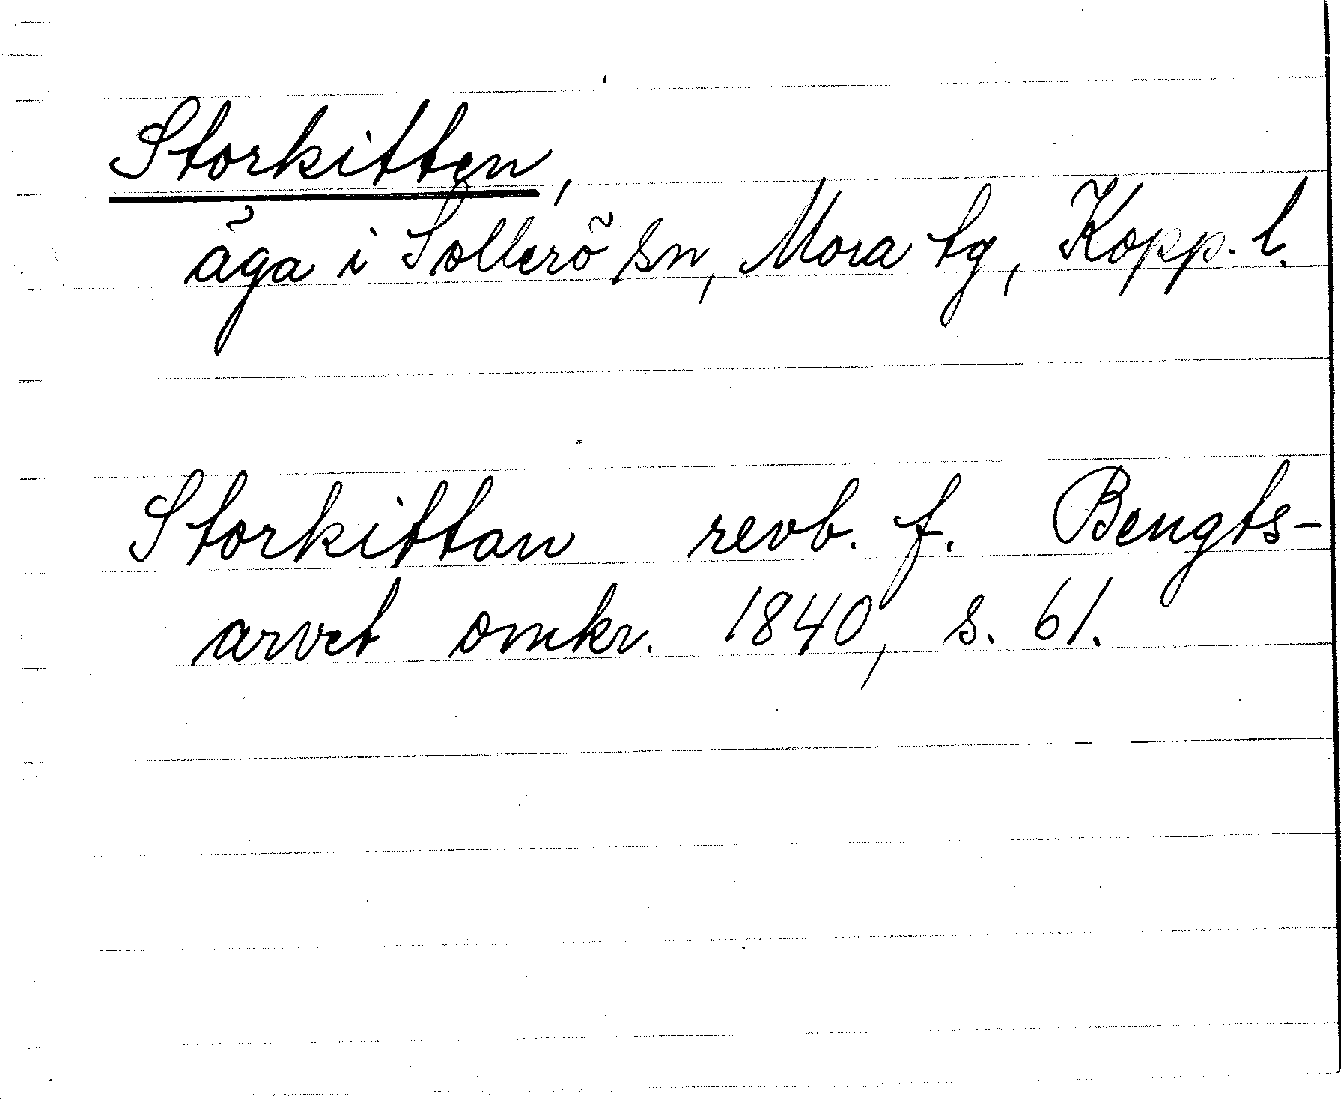 Storkitten,
äga i Sollerö sn, Mora tg, Kopp. l.
Storkittan revb. f. Bengts-
arvet omkr. 1840, s. 61.